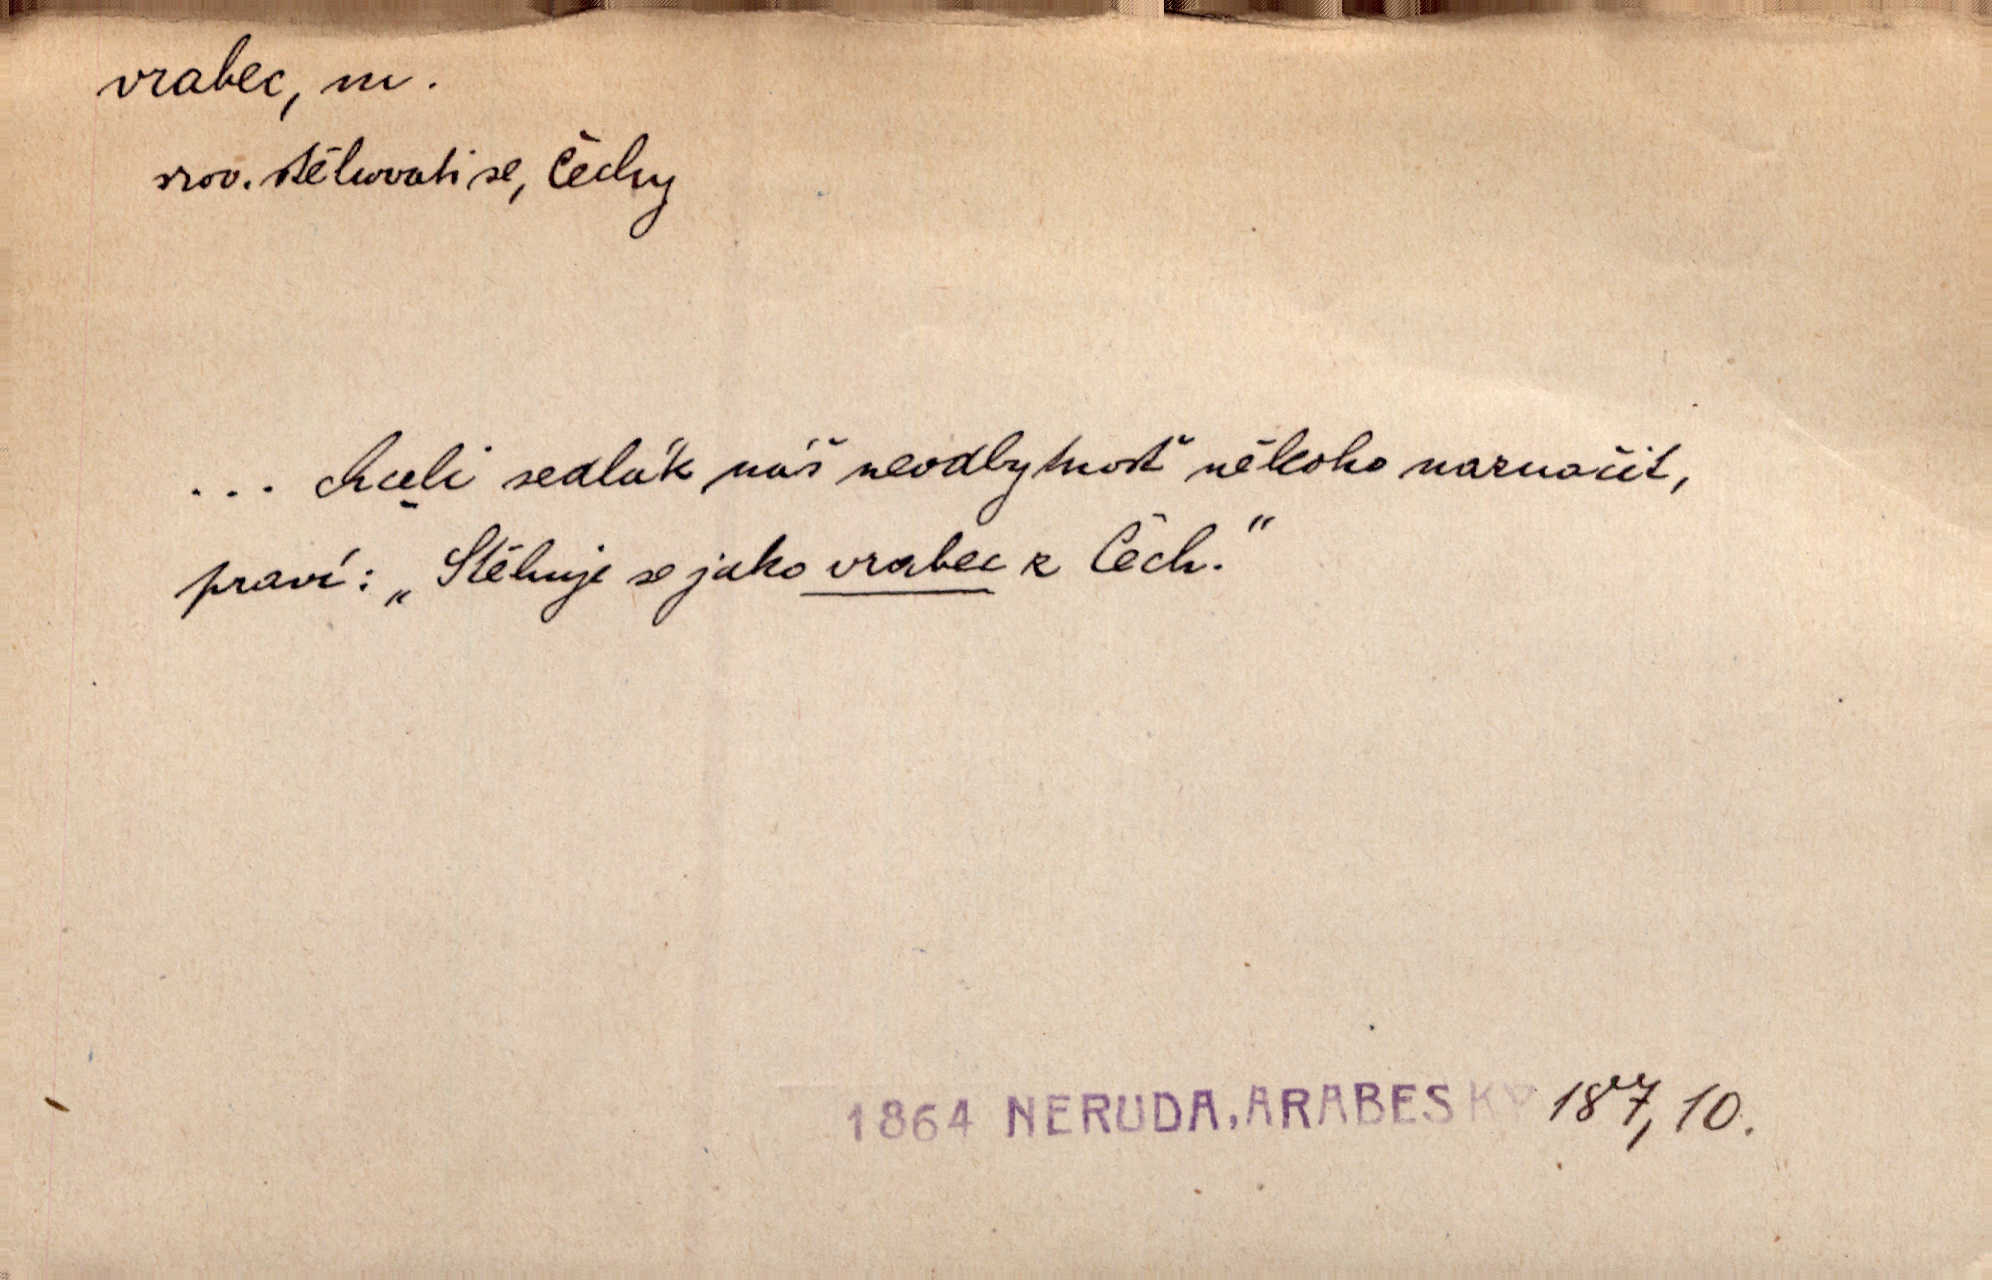 vrabec, m.
srov. stěhovati se, Čechy
... chceli sedlák náš neodbytnosť někoho naznačit,
praví: „Stěhuje se jako vrabec z Čech.“
1864 NERUDA, ARABESKY 187, 10.